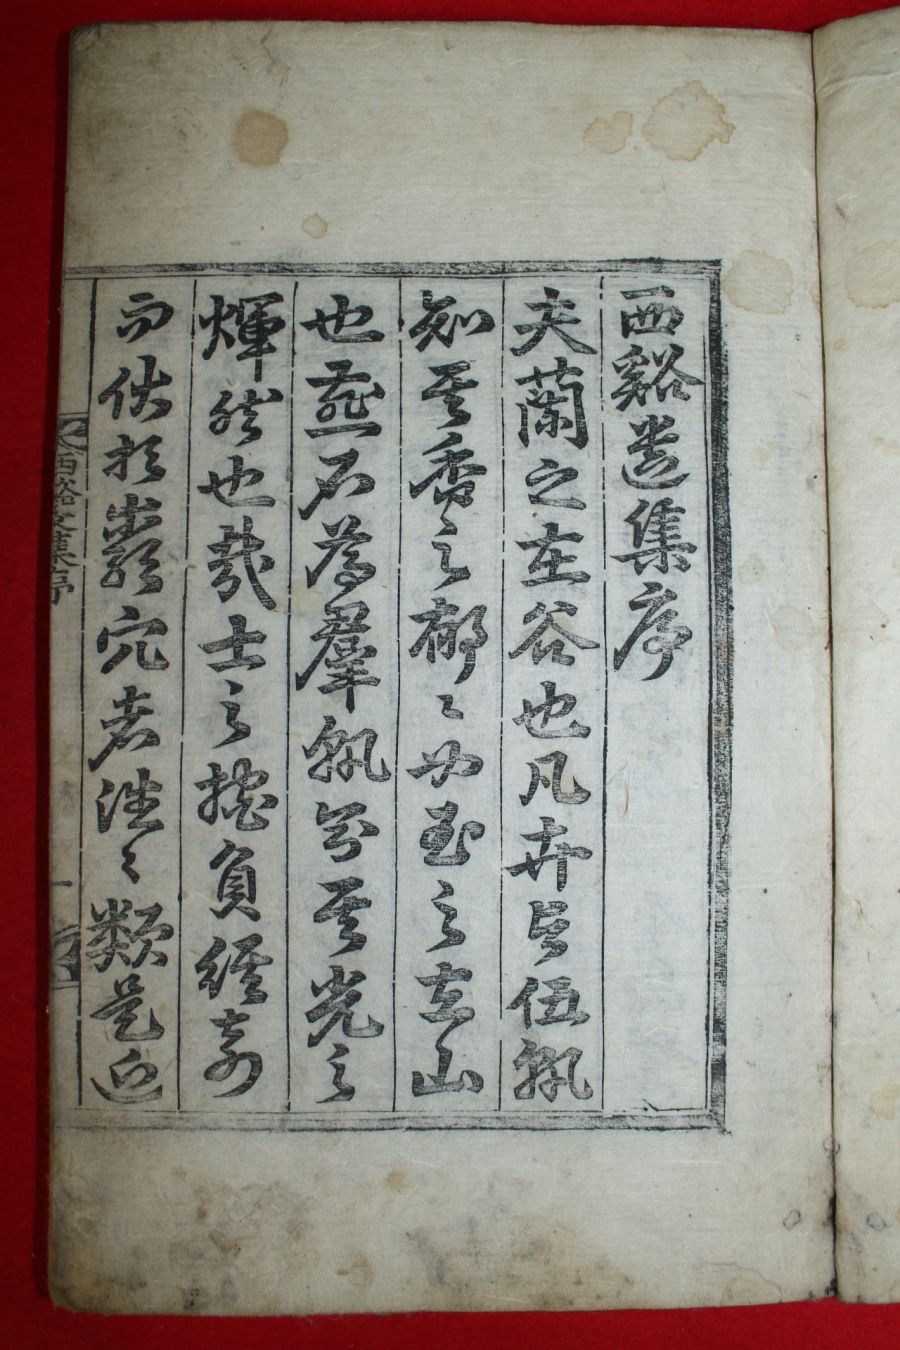 西谿遺集序
夫蘭之在谷也凡卉與伍孰
知其香之郁〻如玉之在山
也燕石為羣孰分其光之
輝然也哉士之負經奇
而伏於巖穴者〻類是近
西谿集序
一